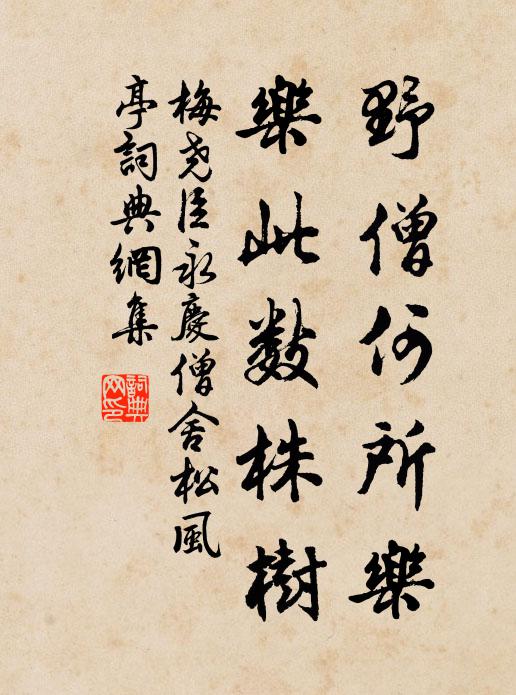 野僧何所樂
樂此数株樹
梅尧臣永慶僧舍松風
亭詞典網集
詞典网印